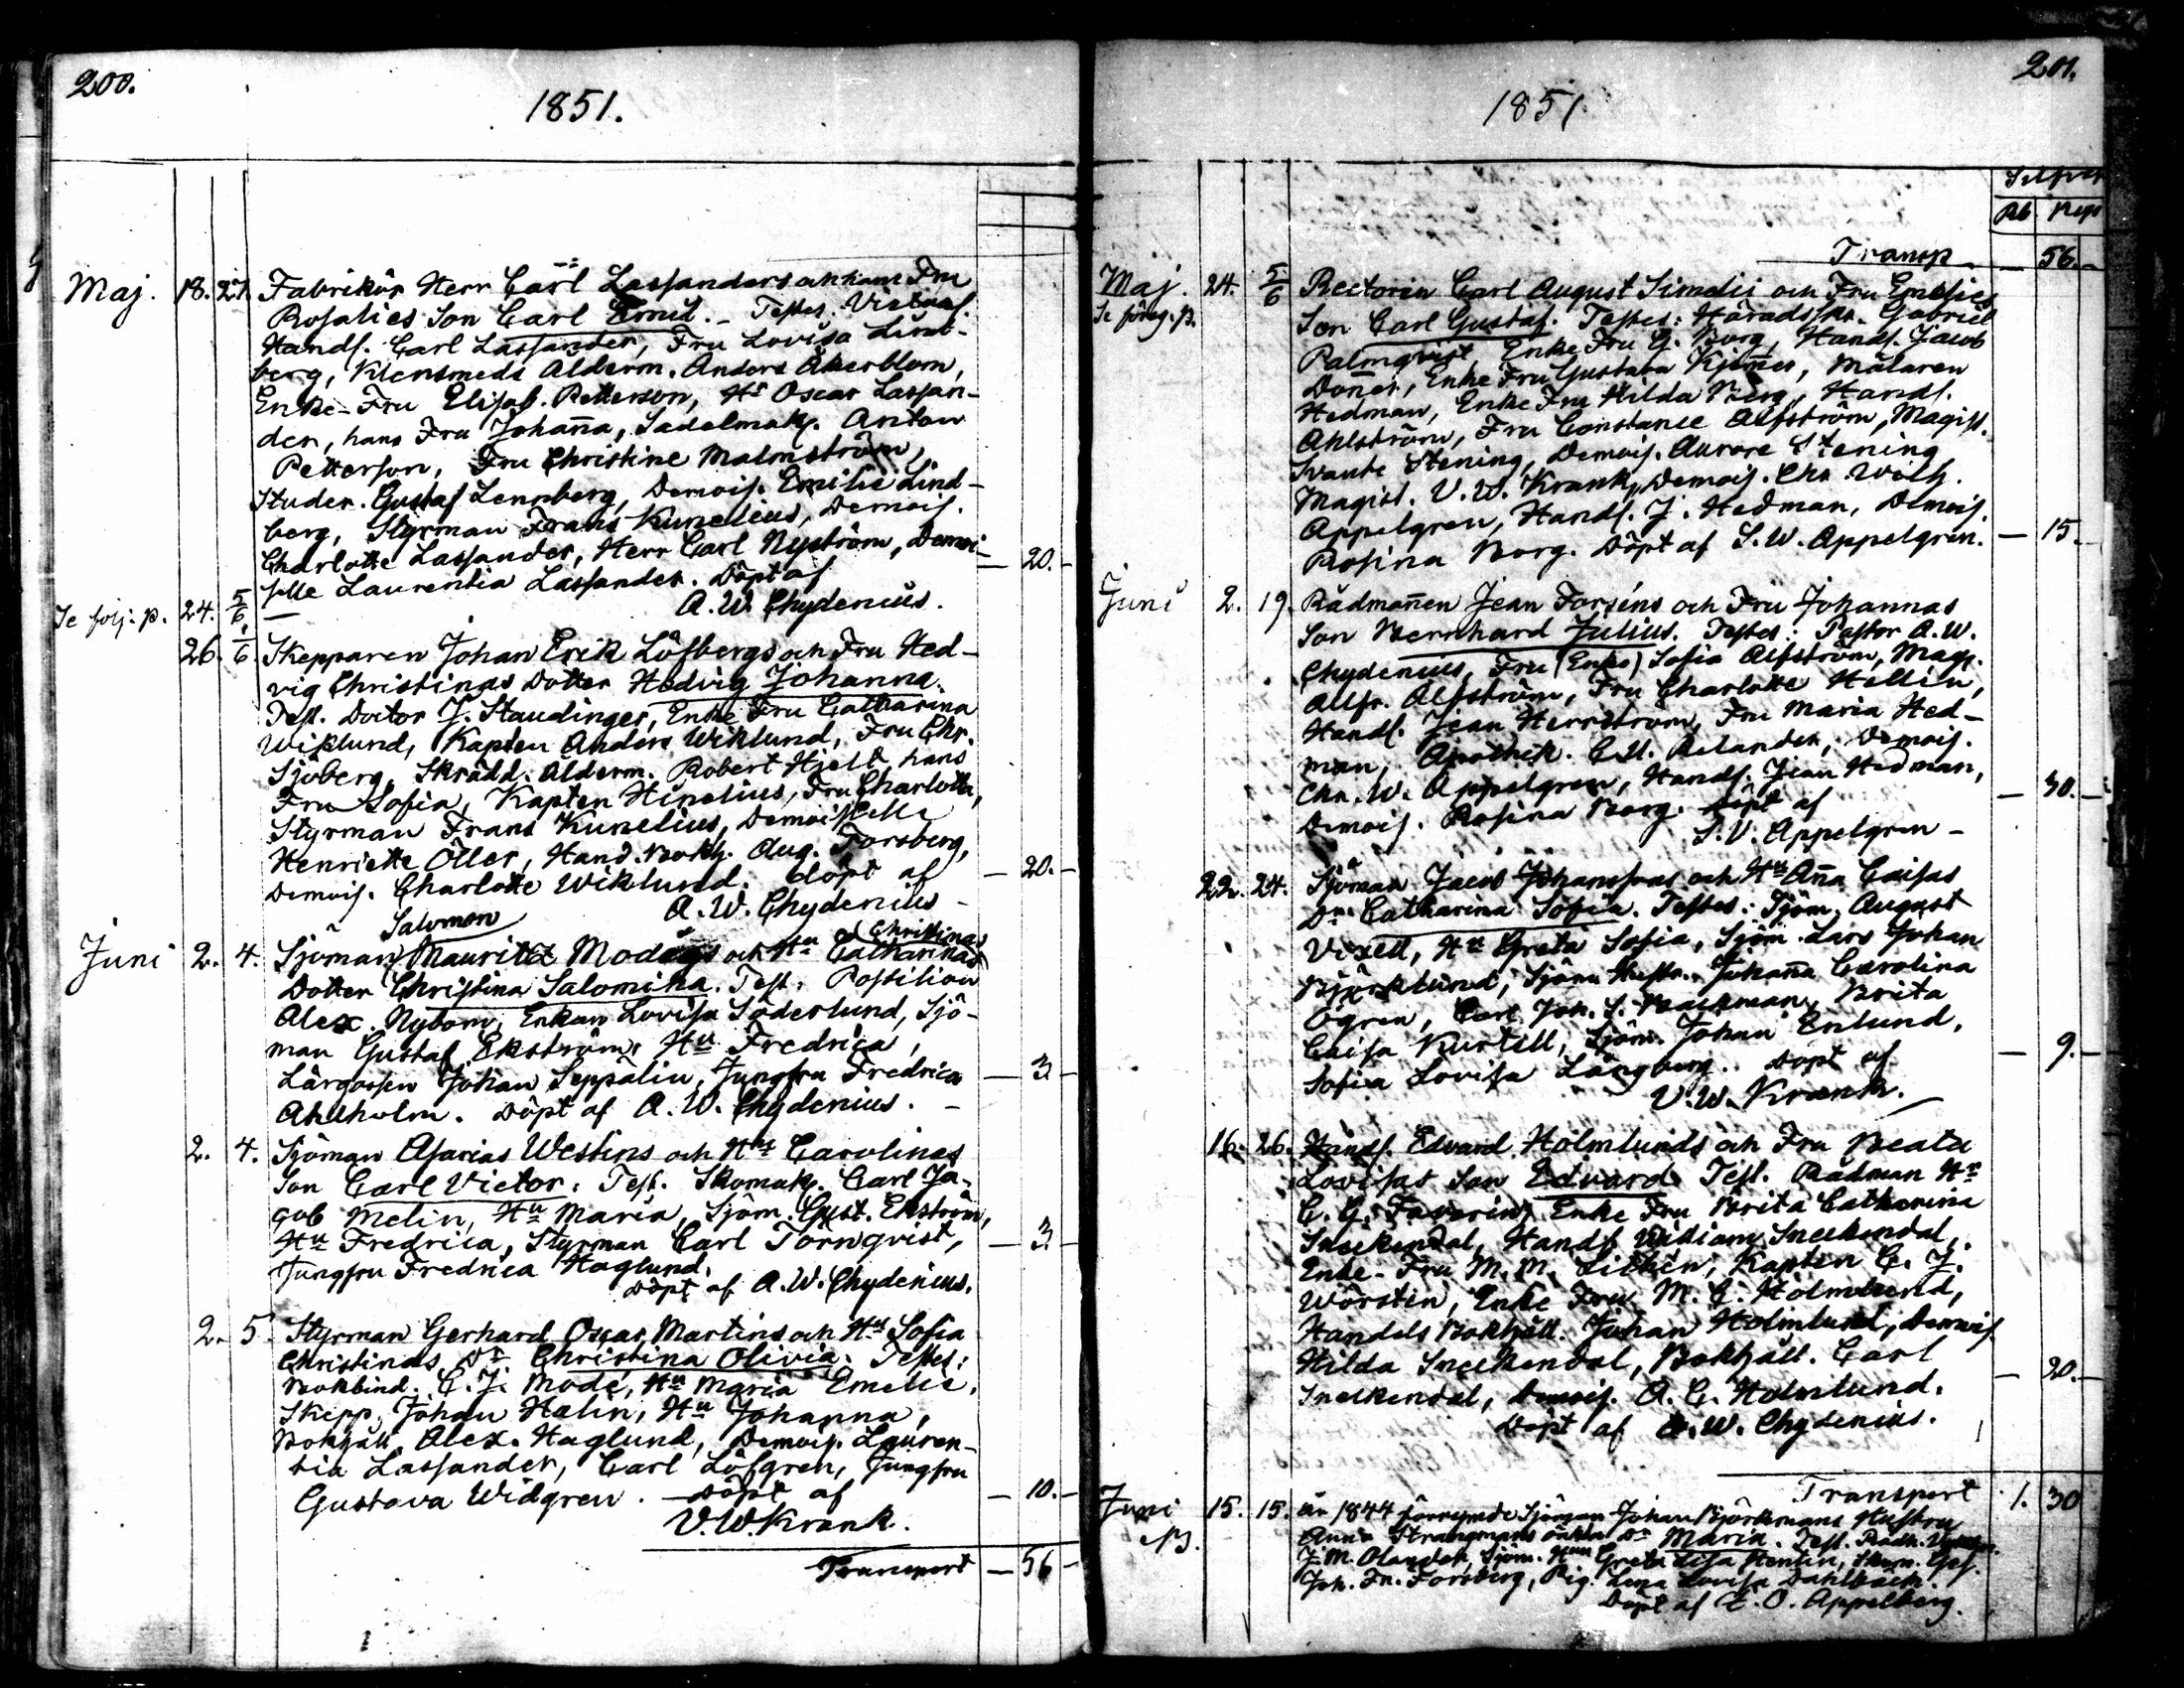 200.
1851.
Maj. 18. 27. Fabrikör Herr Carl Lassanders och hans Fru
Rosalies Son Carl Emil. Testes. Victual.
Handl. Carl Lassander, Fru Lovisa Lind-
berg, Klensmeds Ålderm. Anders Åkerblom,
Enke-Fru Elisab. Petterson, Hr Oscar Lassan-
der, hans Fru Johana, Sadelmak. Anton
Petterson, Fru Christine Malmström,
Studer. Gustaf Lennberg, Demois. Emilie Lind-
berg, Styrman Frans Kunelius, Demois.
Charlotte Lassander, Herr Carl Nyström, Demoi-
selle Laurentia Lassander. Döpt af — 20. -
A. W. Chydenius.
Se följ. p. 24. 5/6 —
26. 1/6. Skepparen Johan Erik Löfbergs och Fru Hed-
vig Christinas Dotter Hedvig Johanna.
Test. Doctor J. Staudinger, Enke Fru Catharina
Wiklund, Kapten Anders Wiklund, Fru Chr.
Sjöberg, Skrädd. Ålderm. Robert Hjelt, hans
Fru Sofia, Kapten Hinelius, Fru Charlotta,
Styrman Frans Kunelius, Demoiselle
Henriette Öller, Hand. Bokh. Aug. Forsberg,
Demois. Charlotte Wiklund. döpt af — 20. -
A. W. Chydenius -
Salomon
Christinas
Juni 2. 4. Sjöman Mauritz Modégs och Hu Catharinas
Dotter Christina Salomina. Test. Postilion
Alex. Nybom, Enkan Lovisa Söderlund, Sjö-
man Gustaf Ekström, Hu Fredrica,
Lärgossen Johan Seppälin, Jungfru Fredrica — 3 -
Ahlholm. Döpt af A. W. Chydenius. -
2. 4. Sjöman Asarias Westins och Hus Carolinas
Son Carl Victor. Test. Skomak. Carl Ja-
cob Melin, Hu Maria, Sjöm. Gust. Ekström,
Hu Fredrica, Styrman Carl Törnqvist, — 3 -
Jungfru Fredrica Haglund.
Döpt af A. W. Chydenius.
2. 5. Styrman Gerhard Oscar Martins och Hu Sofia
Christinas Dr Christina Olivia. Testes:
Bokbind. C. J. Modé, Hu Maria Emelie,
Skepp. Johan Halin, Hu Johanna,
Bokhåll. Alex. Haglund, Demois. Lauren-
tia Lassander, Carl Löfgren, Jungfru
Gustava Widgren. — Döpt af — 10. -
V. W. Krank.
Transport — 56 -
201.
1851
Silfver
Rb Kop
Transp — 56. -
Maj. 24. 5/6 Rectorn Carl August Simelii och Fru Emelies
Se föreg. p. Son Carl Gustaf. Testes: Häradsskr. Gabriel
Palmqvist, Enke Fru G. Borg, Handl. Jacob
Doner, Enke Fru Gustava Kjemes, Målaren
Hedman, Enke Fru Hilda Berg, Handl.
Ahlström, Fru Constance Alfström, Magist.
Svante Stening, Demois. Aurore Stening
Magist. V. W. Krank, Demois. Chr. Wilh.
Appelgren, Handl. J. Hedman, Demois.
Rosina Borg. Döpt af S. W. Appelgren. — 15. -
Juni 2. 19. Rådmannen Jean Forséns och Fru Johannas
Son Bernhard Julius. Testes: Pastor A. W.
Chydenius, Fru (Enke) Sofia Alfström, Mag.
Alfr. Alfström, Fru Charlotte Hellin,
Handl. Jean Herrström, Fru Maria Hed-
man, Apothek. C. U. Relander, Demois.
Chr. W. Appelgren, Handl. Jean Hedman,
Demois. Rosina Borg. Döpt af — 30. -
S. V. Appelgren -
22. 24. Sjöman Jacob Johanssons och Hu Anna Caisas
Dr Catharina Sofia. Testes: Sjöm. August
Vixell, Hu Greta Sofia, Sjöm. Lars Johan
Björklund, Sjöm. Hustr. Johana Carolina
Ögren, Carl Joh. S. Backman, Brita
Caisa Kurtell, Sjöm. Johan Enlund,
Sofia Lovisa Långberg. Döpt af — 9. -
V. W. Krank.
16. 26. Handl. Edvard Holmlunds och Fru Beata
Lovisas Son Edvard. Test. Rådman Hr
C. G. Favorin, Enke Fru Brita Catharina
Sneckendal, Handl. William Sneckendal,
Enke-Fru M. M. Lithén, Kapten C. J.
Wörstin, Enke Fru M. C. Holmlund,
Handels Bokhåll. Johan Holmlund, Demois.
Hilda Sneckendal, Bokhåll. Carl
Sneckendal, Demois. A. C. Holmlund. — 20. -
Döpt af A. W. Chydenius.
Transport 1. 30
Juni 15. 15. år 1844 förrymde Sjöman Johan Björkmans Hustru
Anna Strangmans oäkta Dr Maria. Test. Rådh.
J. M. Olander, Sjöm. Hun Greta Lisa Henlin, Skom. Ges.
Joh. Fr. Forsberg, Pig. Lena Lovisa Dahlbäck.
Döpt af E. O. Appelberg.